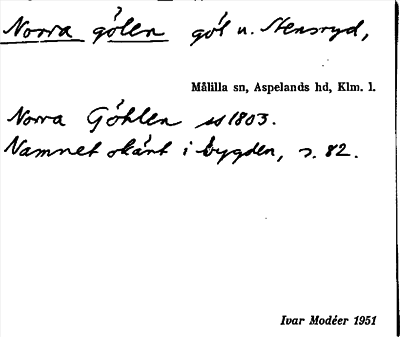 Norra gölen göl n. Stensryd,
Målilla sn, Aspelands hd, Klm. l.
Norra Göhlen ss 1803.
Namnet okänt i bygden, s. 82.
Ivar Modéer 1951